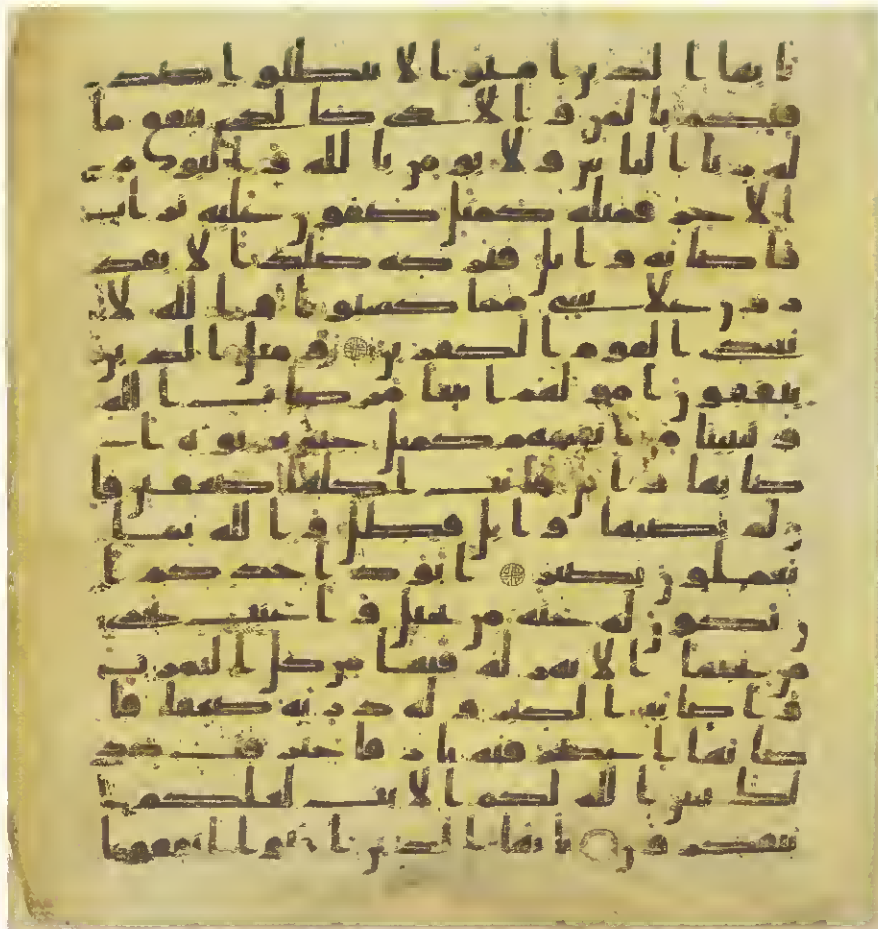 يايها الذين امنوا لا تبطلوا صد
قتكم بالمن و الاذى كالذى ينفق ما
له رئا الناس ولا يومن بالله واليوم
الاخر فمثله كمثل صفون عليه تراب
فاصابه وابل فتركه صلدا لا يقد
رون على شى مما كسبوا والله لا
يهدى القوم الكفرين ومثل الذين
ينفقون امولهم ابتغا مرضات الله
وتثبيتا من انفسهم كمثل جنه بربوه ا
صابها وابل فاتت اكلها ضعفين فا
ن لم يصبها وابل فطل والله بما
تعملون بصير ايود احدكم ا
ن تكون له جنه من نخيل واعنب تجرى
من تحتها الانهر له فيها من كل الثمرت
واصابه الكبر وله ذريه ضعفا فا
صابها اعصر فيه نار فاحترقت كذ
لك يبين الله لكم الايت لعلكم
تتفكرون يايها الذين امنوا انفقوا